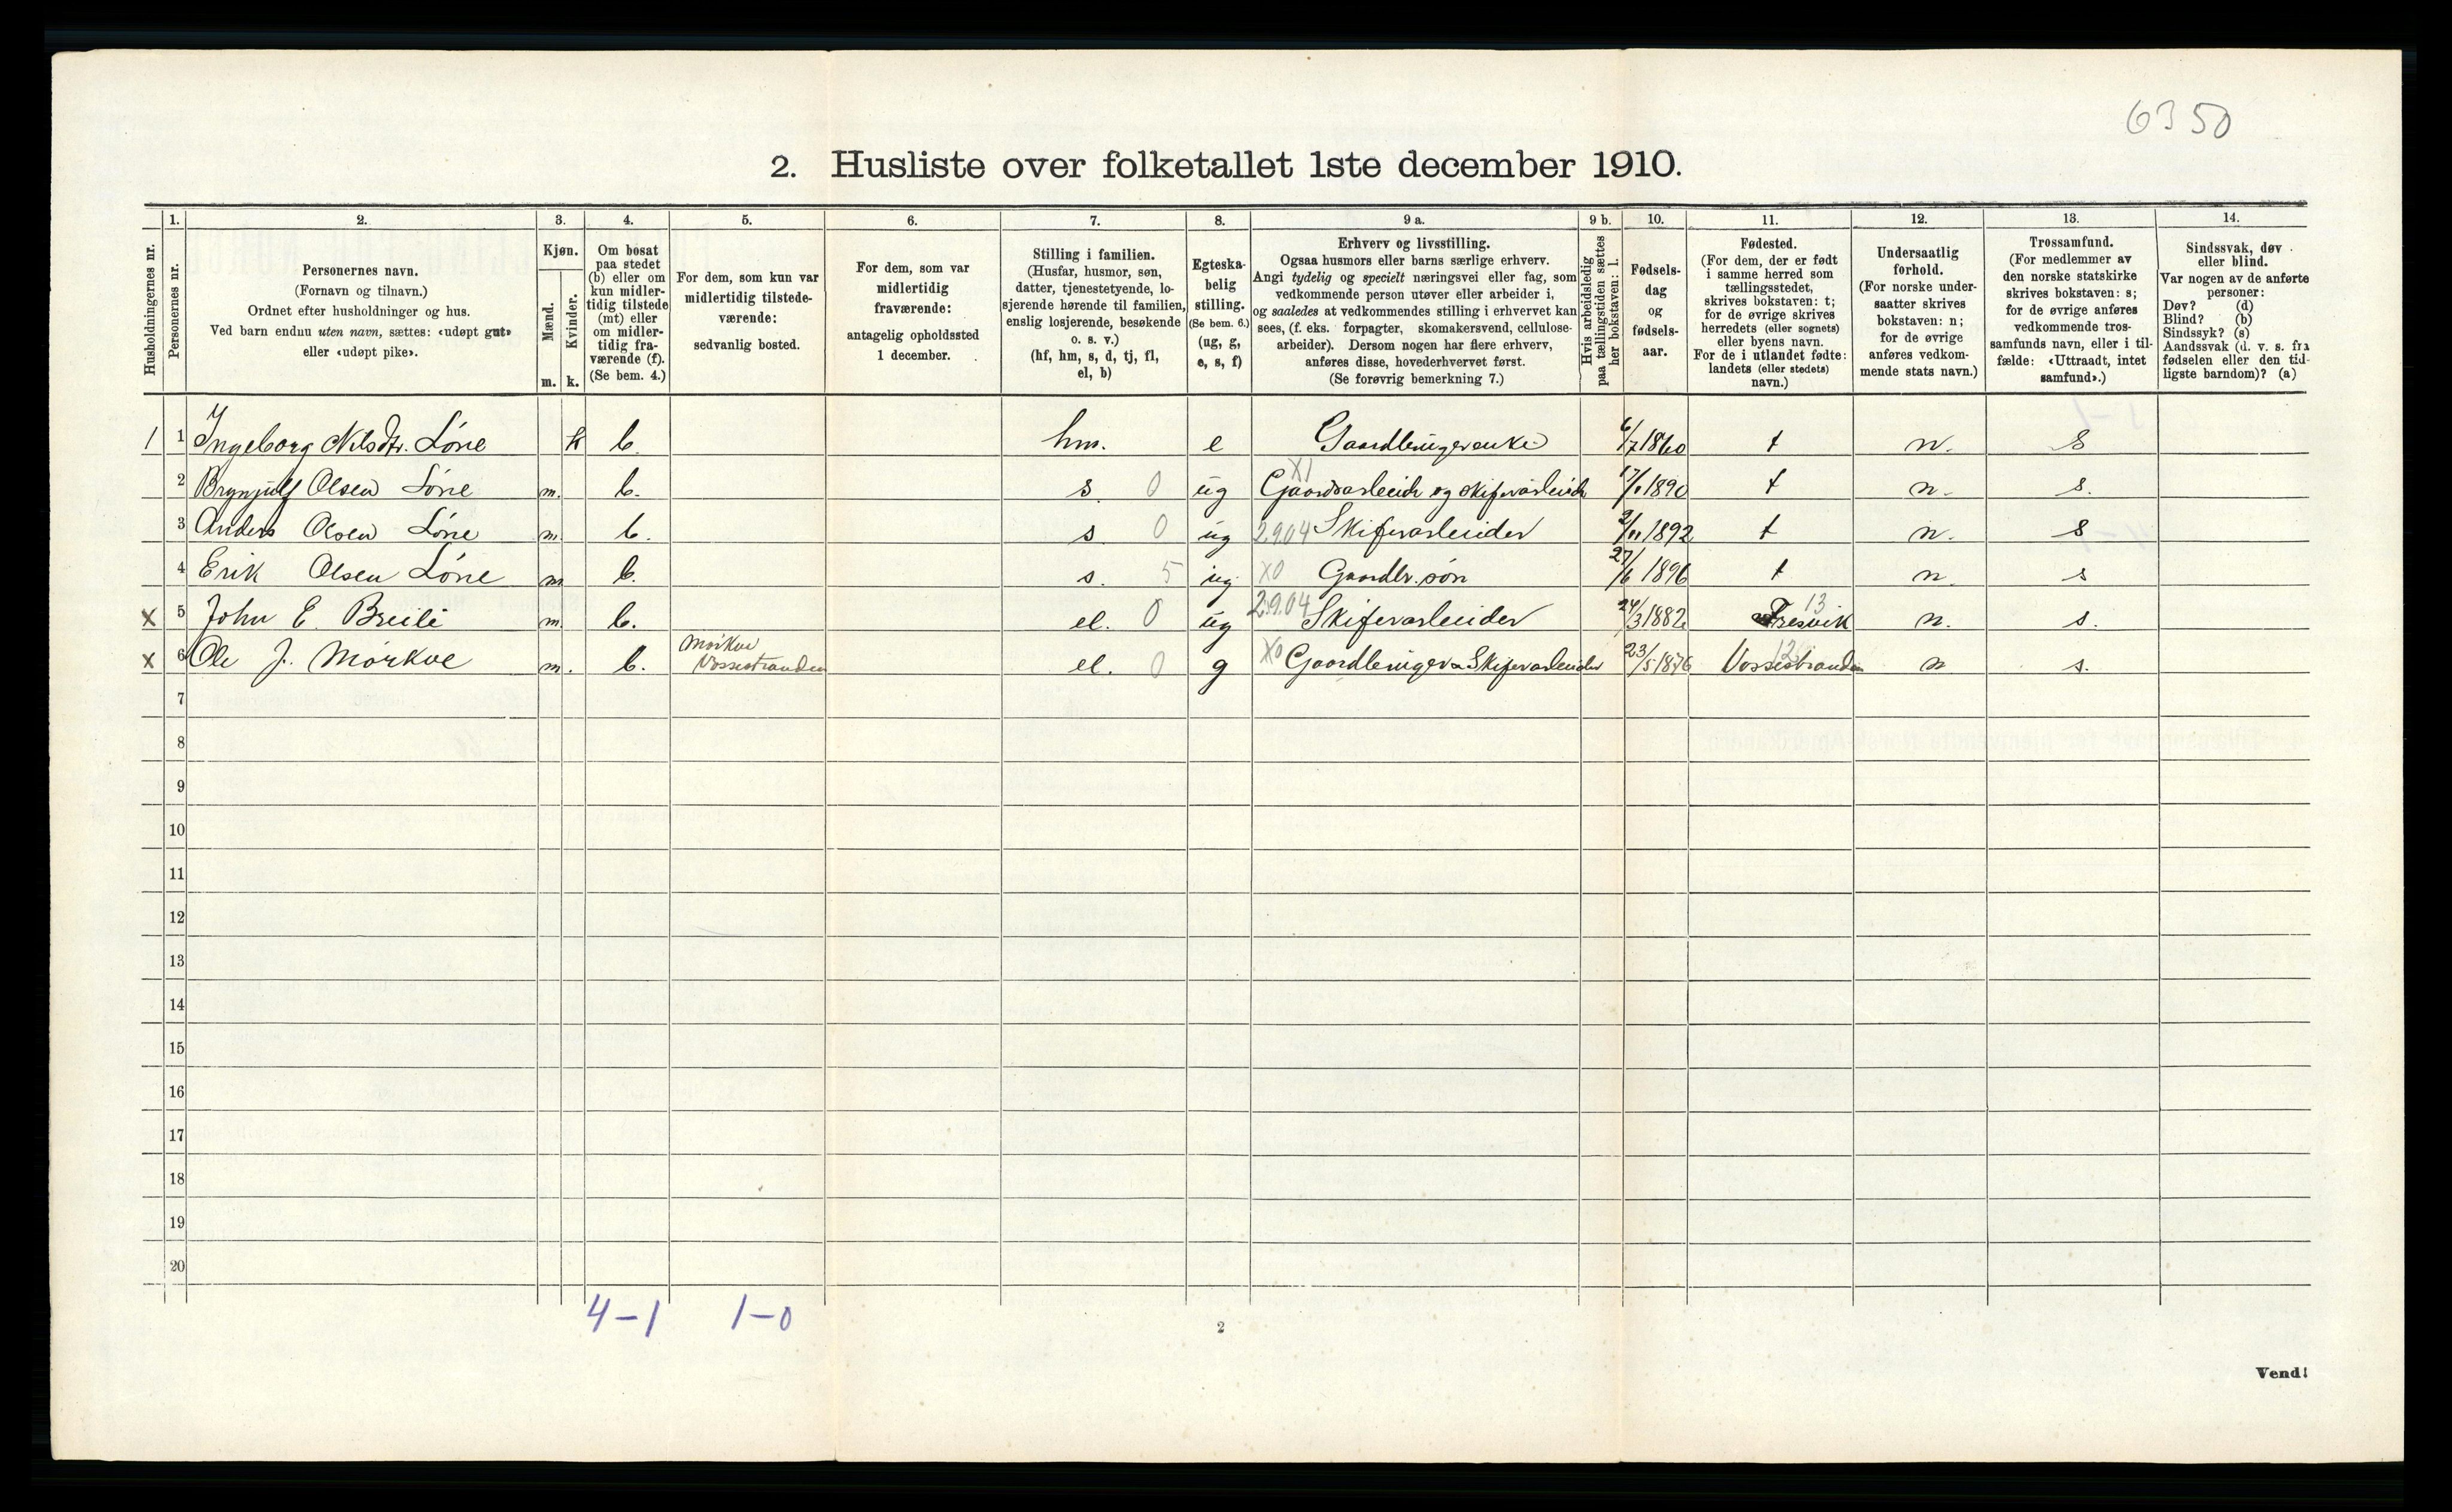 6350
2. Husliste over folketallet 1ste december 1910.
Husholdningernes nr.
1.
Personernes nr.
2.
Personernes navn.
(Fornavn og tilnavn.)
Ordnet efter husholdninger og hus.
Ved barn endnu uten navn, sættes: «udøpt gut»
eller «udøpt pike».
3.
Kjøn.
Mænd.
m.
Kvinder.
k.
4.
Om bosat
paa stedet
(b) eller om
kun midler-
tidig tilstede
(mt) eller
om midler-
tidig fra-
værende (f).
(Se bem. 4.)
5.
For dem, som kun var
midlertidig tilstede-
værende:
sedvanlig bosted.
6.
For dem, som var
midlertidig
fraværende:
antagelig opholdssted
1 december.
7.
Stilling i familien.
(Husfar, husmor, søn,
datter, tjenestetyende, lo-
sjerende hørende til familien,
enslig losjerende, besøkende
o. s. v.)
(hf, hm, s, d, tj, fl,
el, b)
8.
Egteska-
belig
stilling.
(Se bem. 6.)
(ug, g,
e, s, f)
9 a.
Erhverv og livsstilling.
Ogsaa husmors eller barns særlige erhverv.
Angi tydelig og specielt næringsvei eller fag, som
vedkommende person utøver eller arbeider i,
og saaledes at vedkommendes stilling i erhvervet kan
sees, (f. eks. forpagter, skomakersvend, cellulose-
arbeider). Dersom nogen har flere erhverv,
anføres disse, hovederhvervet først.
(Se forøvrig bemerkning 7.)
9 b.
Hvis arbeidsledig
paa tællingstiden sættes
her bokstaven: l.
10.
Fødsels-
dag
og
fødsels-
aar.
11.
Fødested.
(For dem, der er født
i samme herred som
tællingsstedet,
skrives bokstaven: t;
for de øvrige skrives
herredets (eller sognets)
eller byens navn.
For de i utlandet fødte:
landets (eller stedets)
navn.)
12.
Undersaatlig
forhold.
(For norske under-
saatter skrives
bokstaven: n;
for de øvrige
anføres vedkom-
mende stats navn.)
13.
Trossamfund.
(For medlemmer av
den norske statskirke
skrives bokstaven: s;
for de øvrige anføres
vedkommende tros-
samfunds navn, eller i til-
fælde: «Uttraadt, intet
samfund».)
14.
Sindssvak, døv
eller blind.
Var nogen av de anførte
personer:
Døv? (d)
Blind? (b)
Sindssyk? (s)
Aandssvak (d. v. s. fra
fødselen eller den tid-
ligste barndom)? (a)
1 1 Ingeborg Nilsdtr. Løne k b. hm. e Gaardbrugerenke 6/7 1860 t n. s
2 Brynjulf Olsen Løne m. b. s 0 ug X1 Gaardsarbeider og skiferarbeider 1890 t n. s.
3 Anders Olsen Løne m. b. s 0 ug 2.9.04 Skiferarbeider 2/11 1892 t n. s
4 Erik Olsen Løne m b. s. 5 ug X0 Gaardbr. søn 27/6 1896 t n. s
X 5 John E. Breili m. b. el. 0 ug 2.9.04 Skiferarbeider 24/3 1882 Fresvik 13 n. s.
X 6 Ole J. Mørkve m. b. Mørkve Vossestranden el. 0 g X0 Gaardbruger & Skiferarbeider 23/5 1876 Vossestranden 12 n s.
7
8
9
10
11
12
13
14
15
16
17
18
19
20
4-1 1-0
2
Vend!